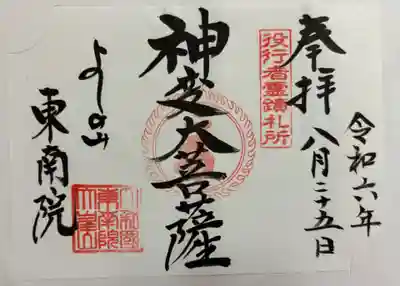 令和六年
八月二十五日
奉拝
役行者霊蹟札所
神変大菩薩
よしの山
東南院